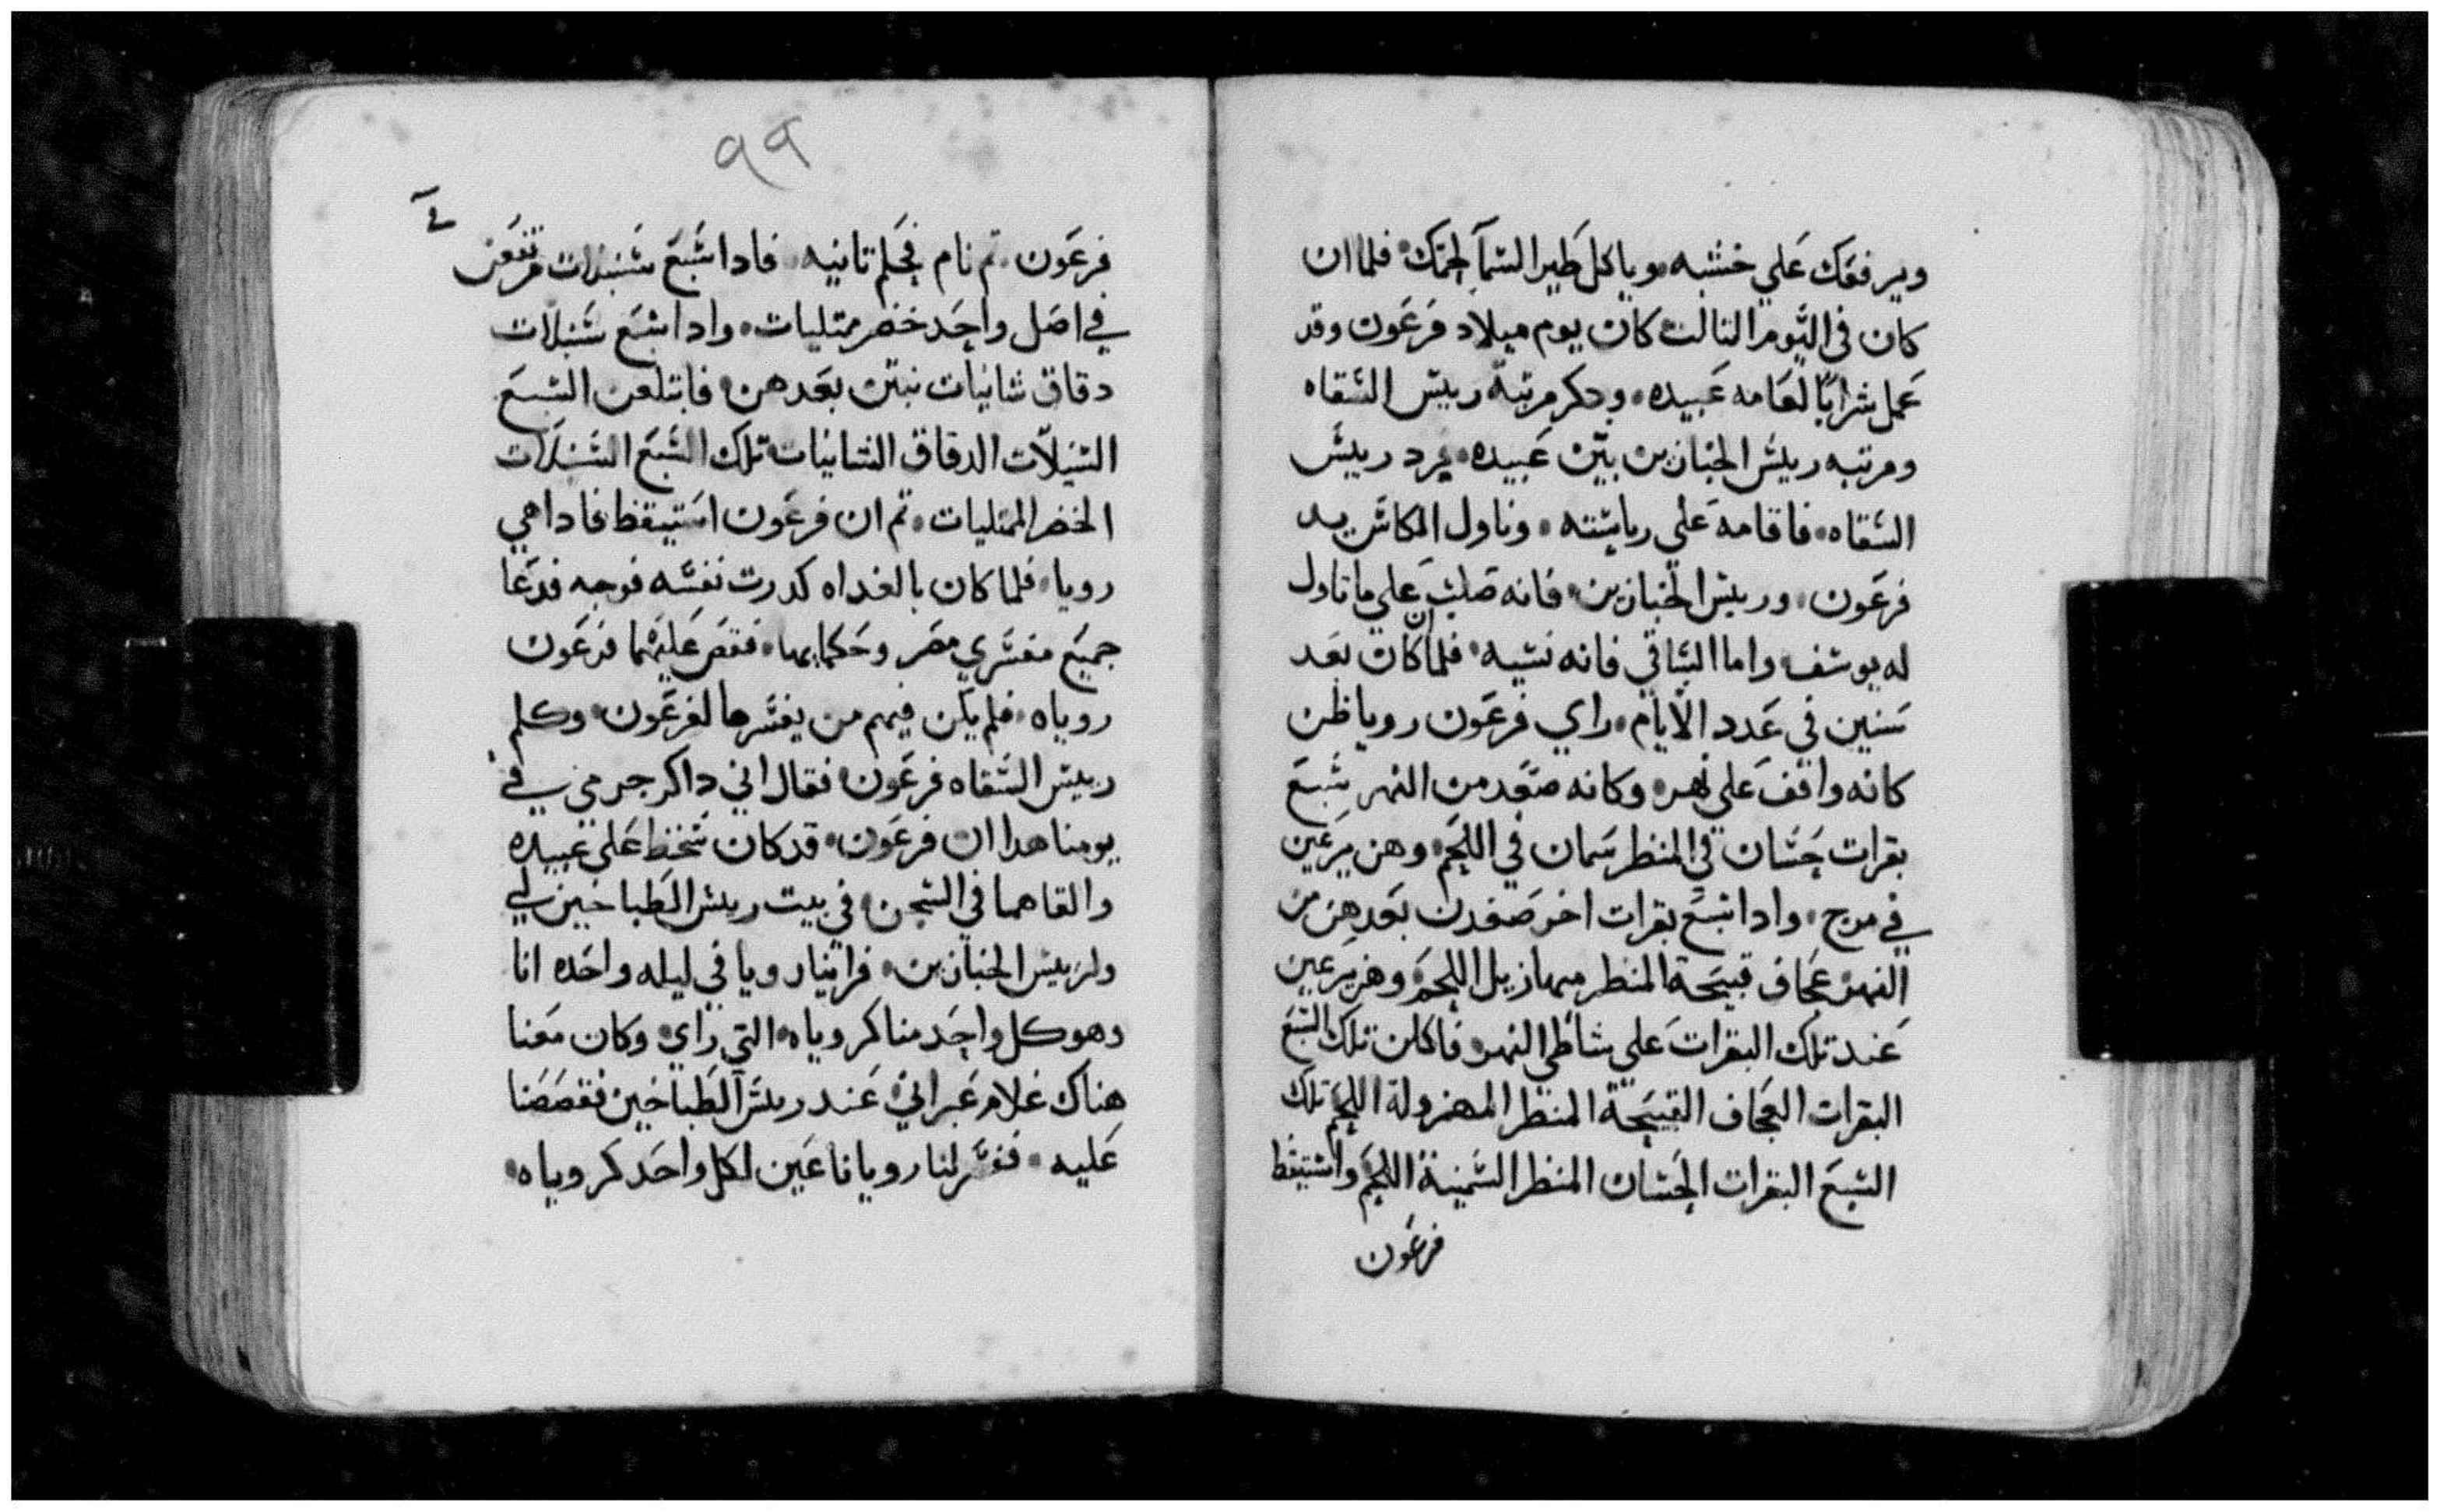 ويرفعك علي خشبه وياكل طير السمآ لحمك فلما ان
كان في اليوم التالت كان يوم ميلاد فرعون وقد
عمل شرابًا لعامه عبيده ودكر مرتبة رييس السقاه
ومرتبه رييس الخبازين بين عبيده فرد رييس
السقاه فاقامه علي رياسته وناول الكاس يد
فرعون ورييس الخبازين فانه صلب علي ما تاول
له يوسف واما الساقي فانه نسيه فلما كان بعد
سنين في عدد الايام راي فرعون رويا ظن
كانه واقف علي نهر وكانه صعد من النهر سبع
بقرات حسان في المنظر سمان في اللحم وهن يرعين
في مرج وادا سبع بقرات اخر صعدن بعدهن من
النهر عجاف قبيحة المنظر مهازيل اللحم وهن يرعين
عند تلك البقرات علي شاطي النهر فاكلن تلك السبع
البقرات العجاف القبيحة المنظر المهزولة اللحم تلك
السبع البقرات الحسان المنظر السمينة اللحم واستيقظ
فرعون
٩٩
فرعون تم نام فحلم تانيه فادا سبع سنبلات مرتفعن
في اصل واحد خضر ممتليات وادا سبع سنبلات
دقاق شانيات نبتن بعدهن فابتلعن السبع
السنبلات الدقاق الشانيات تلك السبع السنبلات
الخضر الممتليات تم ان فرعون استيقظ فادا هي
رويا فلما كان بالغداه كدرت نفسه فوجه فدعا
جميع مفسري مصر وحكمايها فقص عليهما فرعون
روياه فلم يكن فيهم من يفسرها لفرعون وكلم
رييس السقاه فرعون فقال اني داكر جرمي في
يومنا هدا ان فرعون قد كان سخط علي عبيده
والقاهما في السجن في بيت رييس الطباخين لي
ولرييس الخبازين فراينا رويا في ليله واحده انا
وهو كل واحد منا كروياه التي راي وكان معنا
هناك غلام عبراني عند رييس الطباخين فقصصنا
عليه ففسر لنا رويانا عين لكل واحد كروياه